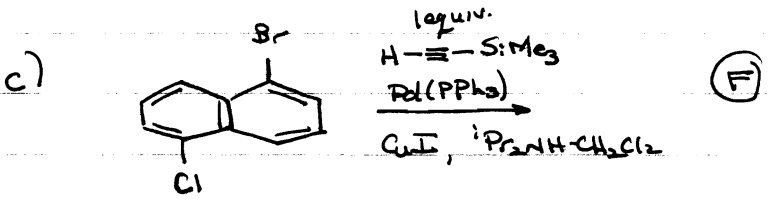 c)
Br
Cl
1equiv.
H-≡-SiMe3
Pd(PPh3)
CuI, iPr2NH-CH2Cl2
F